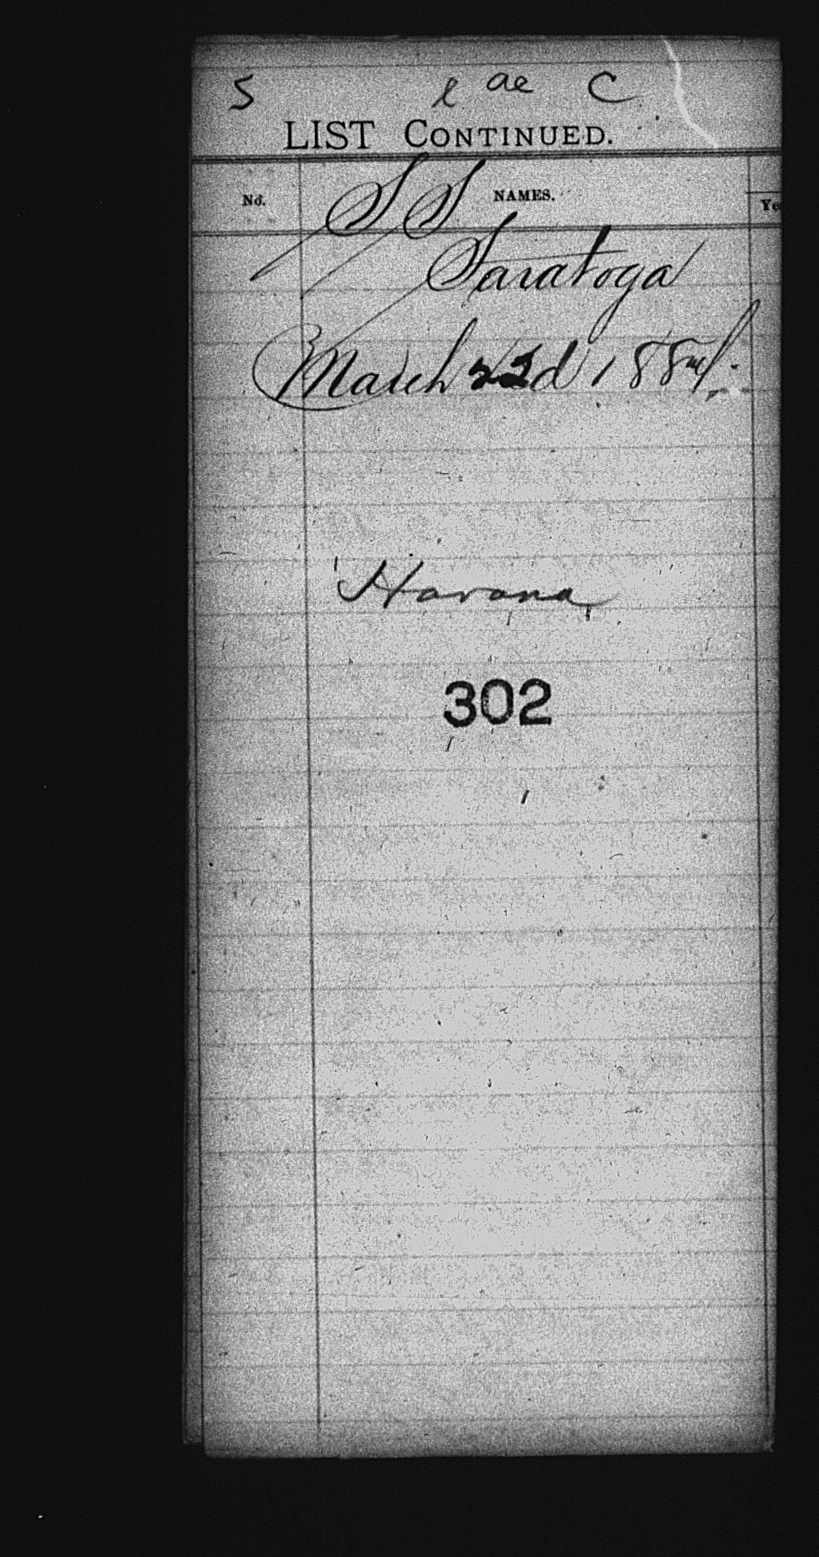 S l ae C
LIST CONTINUED.
No. NAMES. Ye
SS
Saratoga
March 22d 1884.
Havana
302